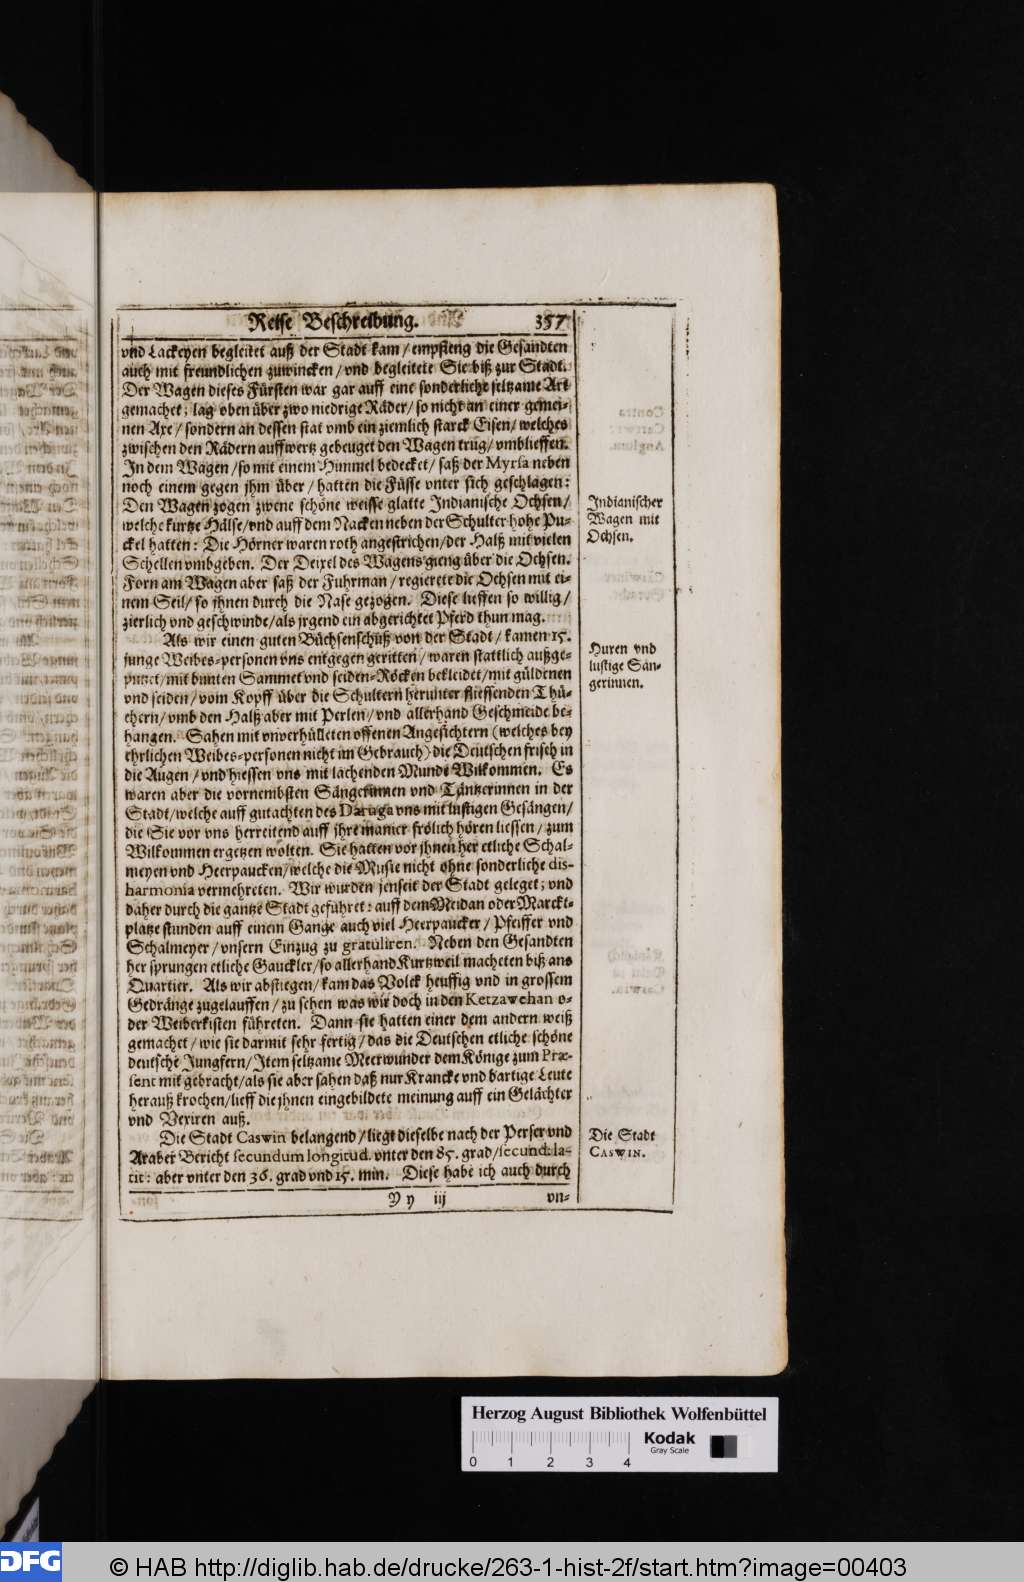 Reise Beschreibung. 357
vnd Lackeyen begleitet auß der Stadt kam / empfieng die Gesandten
auch mit freundlichen zuwincken / vnd begleitete Sie biß zur Stadt.
Der Wagen dieses Fürsten war gar auff eine sonderliche seltzame Art
gemachet; lag oben über zwo niedrige Räder / so nicht an einer gemei-
nen Axe / sondern an dessen stat vmb ein ziemlich starck Eisen / welches
zwischen den Rädern auffwertz gebeuget den Wagen trug / vmblieffen.
In dem Wagen / so mit einem Himmel bedecket / saß der Myrsa neben
noch einem gegen jhm über / hatten die Füsse vnter sich geschlagen:
Den Wagen zogen zwene schöne weisse glatte Indianische Ochsen /
welche kurtze Hälse / vnd auff dem Nacken neben der Schulter hohe Pu-
ckel hatten: Die Hörner waren roth angestrichen / der Halß mit vielen
Schellen vmbgeben. Der Deixel des Wagens gieng über die Ochsen.
Forn am Wagen aber saß der Fuhrman / regierete die Ochsen mit ei-
nem Seil / so jhnen durch die Nase gezogen. Diese lieffen so willig /
zierlich vnd geschwinde / als jrgend ein abgerichtet Pferd thun mag.
Als wir einen guten Büchsenschuß von der Stadt / kamen 15.
junge Weibes-personen vns entgegen geritten / waren stattlich außge-
putzet / mit bunten Sammet vnd seiden-Röcken bekleidet / mit güldenen
vnd seiden / vom Kopff über die Schultern herunter fliessenden Thü-
chern / vmb den Halß aber mit Perlen / vnd allerhand Geschmeide be-
hangen. Sahen mit vnverhülleten offenen Angesichtern (welches bey
ehrlichen Weibes-personen nicht im Gebrauch) die Deutschen frisch in
die Augen / vnd hiessen vns mit lachenden Munde Wilkommen. Es
waren aber die vornembsten Sängerinnen vnd Täntzerinnen in der
Stadt / welche auff gutachten des Daruga vns mit lustigen Gesängen /
die Sie vor vns herreitend auff jhre manier frölich hören liessen / zum
Wilkommen ergetzen wolten. Sie hatten vor jhnen her etliche Schal-
meyen vnd Heerpaucken / welche die Music nicht ohne sonderliche dis-
harmonia vermehreten. Wir wurden jenseit der Stadt geleget; vnd
daher durch die gantze Stadt geführet: auff dem Meidan oder Marckt-
platze stunden auff einem Gange auch viel Heerpaucker / Pfeiffer vnd
Schalmeyer / vnsern Einzug zu gratuliren. Neben den Gesandten
her sprungen etliche Gauckler / so allerhand Kurtzweil macheten biß ans
Quartier. Als wir abstiegen / kam das Volck heuffig vnd in grossem
Gedränge zugelauffen / zu sehen was wir doch in den Ketzawehan o-
der Weiberkisten führeten. Dann sie hatten einer dem andern weiß
gemachet / wie sie darmit sehr fertig / das die Deutschen etliche schöne
deutsche Jungfern / Item seltzame Meerwunder dem Könige zum Præ-
sent mit gebracht / als sie aber sahen daß nur Krancke vnd bartige Leute
herauß krochen / lieff die jhnen eingebildete meinung auff ein Gelächter
vnd Vexiren auß.
Die Stadt Caswin belangend / liegt dieselbe nach der Perser vnd
Araber Bericht secundum longitud. vnter den 85. grad / secund: la-
tit: aber vnter den 36. grad vnd 15. min. Diese habe ich auch durch
Y y iij vn-
Indianischer
Wagen mit
Ochsen.
Huren vnd
lustige Sän-
gerinnen.
Die Stadt
CASWIN.
Herzog August Bibliothek Wolfenbüttel
Kodak
Gray Scale
0 1 2 3 4
DFG © HAB http://diglib.hab.de/drucke/263-1-hist-2f/start.htm?image=00403